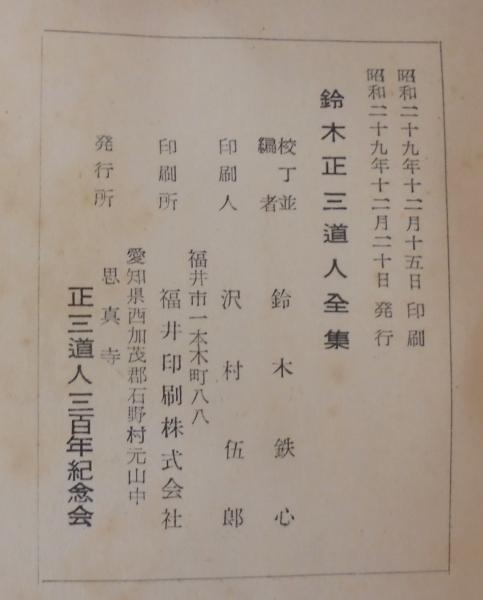 昭和二十九年十二月十五日 印刷
昭和二十九年十二月二十日 発行
鈴木正三道人全集
校丁並編者 鈴木鉄心
印刷人 沢村伍郎
福井市一本木町八八
印刷所 福井印刷株式会社
愛知県西加茂郡石野村元山中
発行所 思真寺
正三道人三百年紀念会